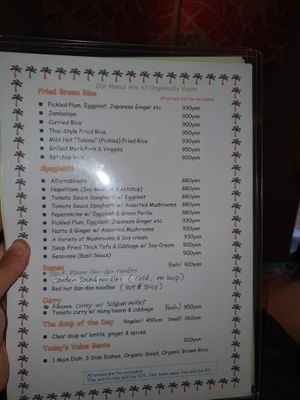 Our Menus Are All Organically Vegan
Fried Brown Rice
All prices are tax excluded.
Pickled Plum, Eggplant, Japanese Ginger etc. 930yen
Jambalaya 900yen
Curried Rice 900yen
Thai-Style Fried Rice 950yen
Mild Hot "Takana" (Pickles) Fried Rice 930yen
Grilled Mock Pork & Veggies 950yen
Ketchup Rice 900yen
Spaghetti
Allarrabbiata 880yen
Napolitana (Soy & Ketchup) 880yen
Tomato Sauce Spaghetti w/ Eggplant 880yen
Tomato Sauce Spaghetti w/ Assorted Mushrooms 880yen
Peperoncino w/ Eggplant & Green Perilla 880yen
Pickled Plum, Eggplant, Japanese Ginger etc. 930yen
Natto & Ginger w/ Assorted Mushrooms 930yen
A Variety of Mushrooms & Soy cream 930yen
Deep-Fried Thick Tofu & Cabbage w/ Soy Cream 900yen
Genovese (Basil Sauce) 900yen
Ramen Each) 920yen
Black Ramen dan-dan noodles
Garden Salad noodles (cold, no soup)
Red hot dan-dan noodles (hot & spicy)
Curry
Keema curry w/ Each) 950yen
Tomato curry w/ mung beans & cabbage
The Soup of the Day Regular 450yen Small 260yen
Clear soup w/ lentils, ginger & spices
Today's Value Bento 920yen
1 Main Dish, 3 Side Dishes, Organic Salad, Organic Brown Rice,
All prices are tax excluded.
The eat-in tax will be 10%. The take away tax will be 8%.